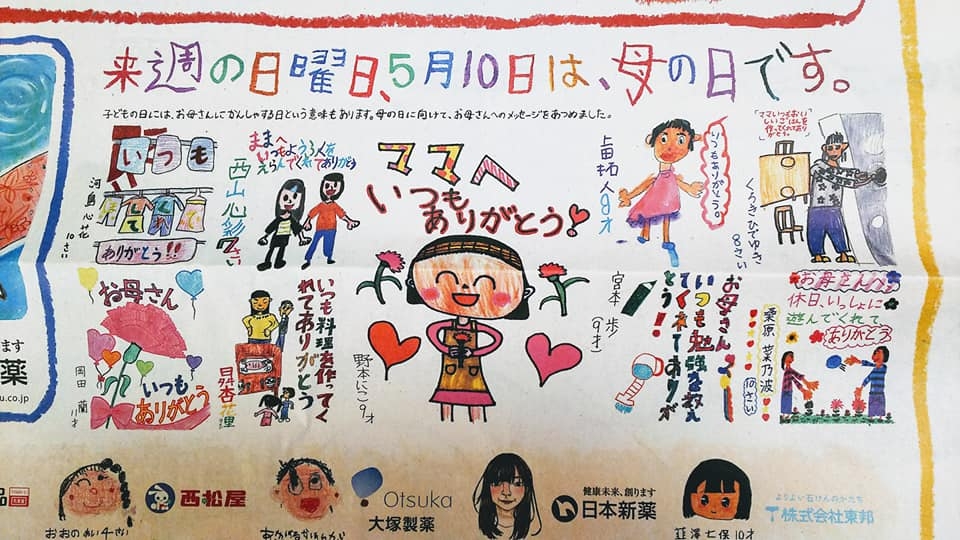 来週の日曜日、5月10日は、母の日です。
子どもの日には、お母さんにかんしゃする日という意味もあります。母の日に向けて、お母さんへのメッセージをあつめました。
いつも
ありがとう!!
河島心花
10さい
ままへ
いつもようふくを
えらんでくれてありがとう
西山心彩
7さい
ママへ
いつも
ありがとう!
野本にこ 9才
いつもありがとう。
上田拓人8才
「ママいつもおい
しいごはんを
作ってくれてあり
がとう。」
くろきひでゆき
8さい
お母さん
いつも
ありがとう
岡田 蘭
11才
いつも料理を作ってく
れてありがとう
お母さん
いつも勉強を教え
てくれてありが
とう!!
宮本 歩
(9才)
お母さんへ
休日、いっしょに
遊んでくれて
ありがとう
栗原 菜乃波
10さい
ます
薬
u.co.jp
品
おおのめい4さい
西松屋
Otsuka
大塚製薬
健康未来、創ります
日本新薬
韮澤七保10才
よりよい石けんのかたち
株式会社東邦